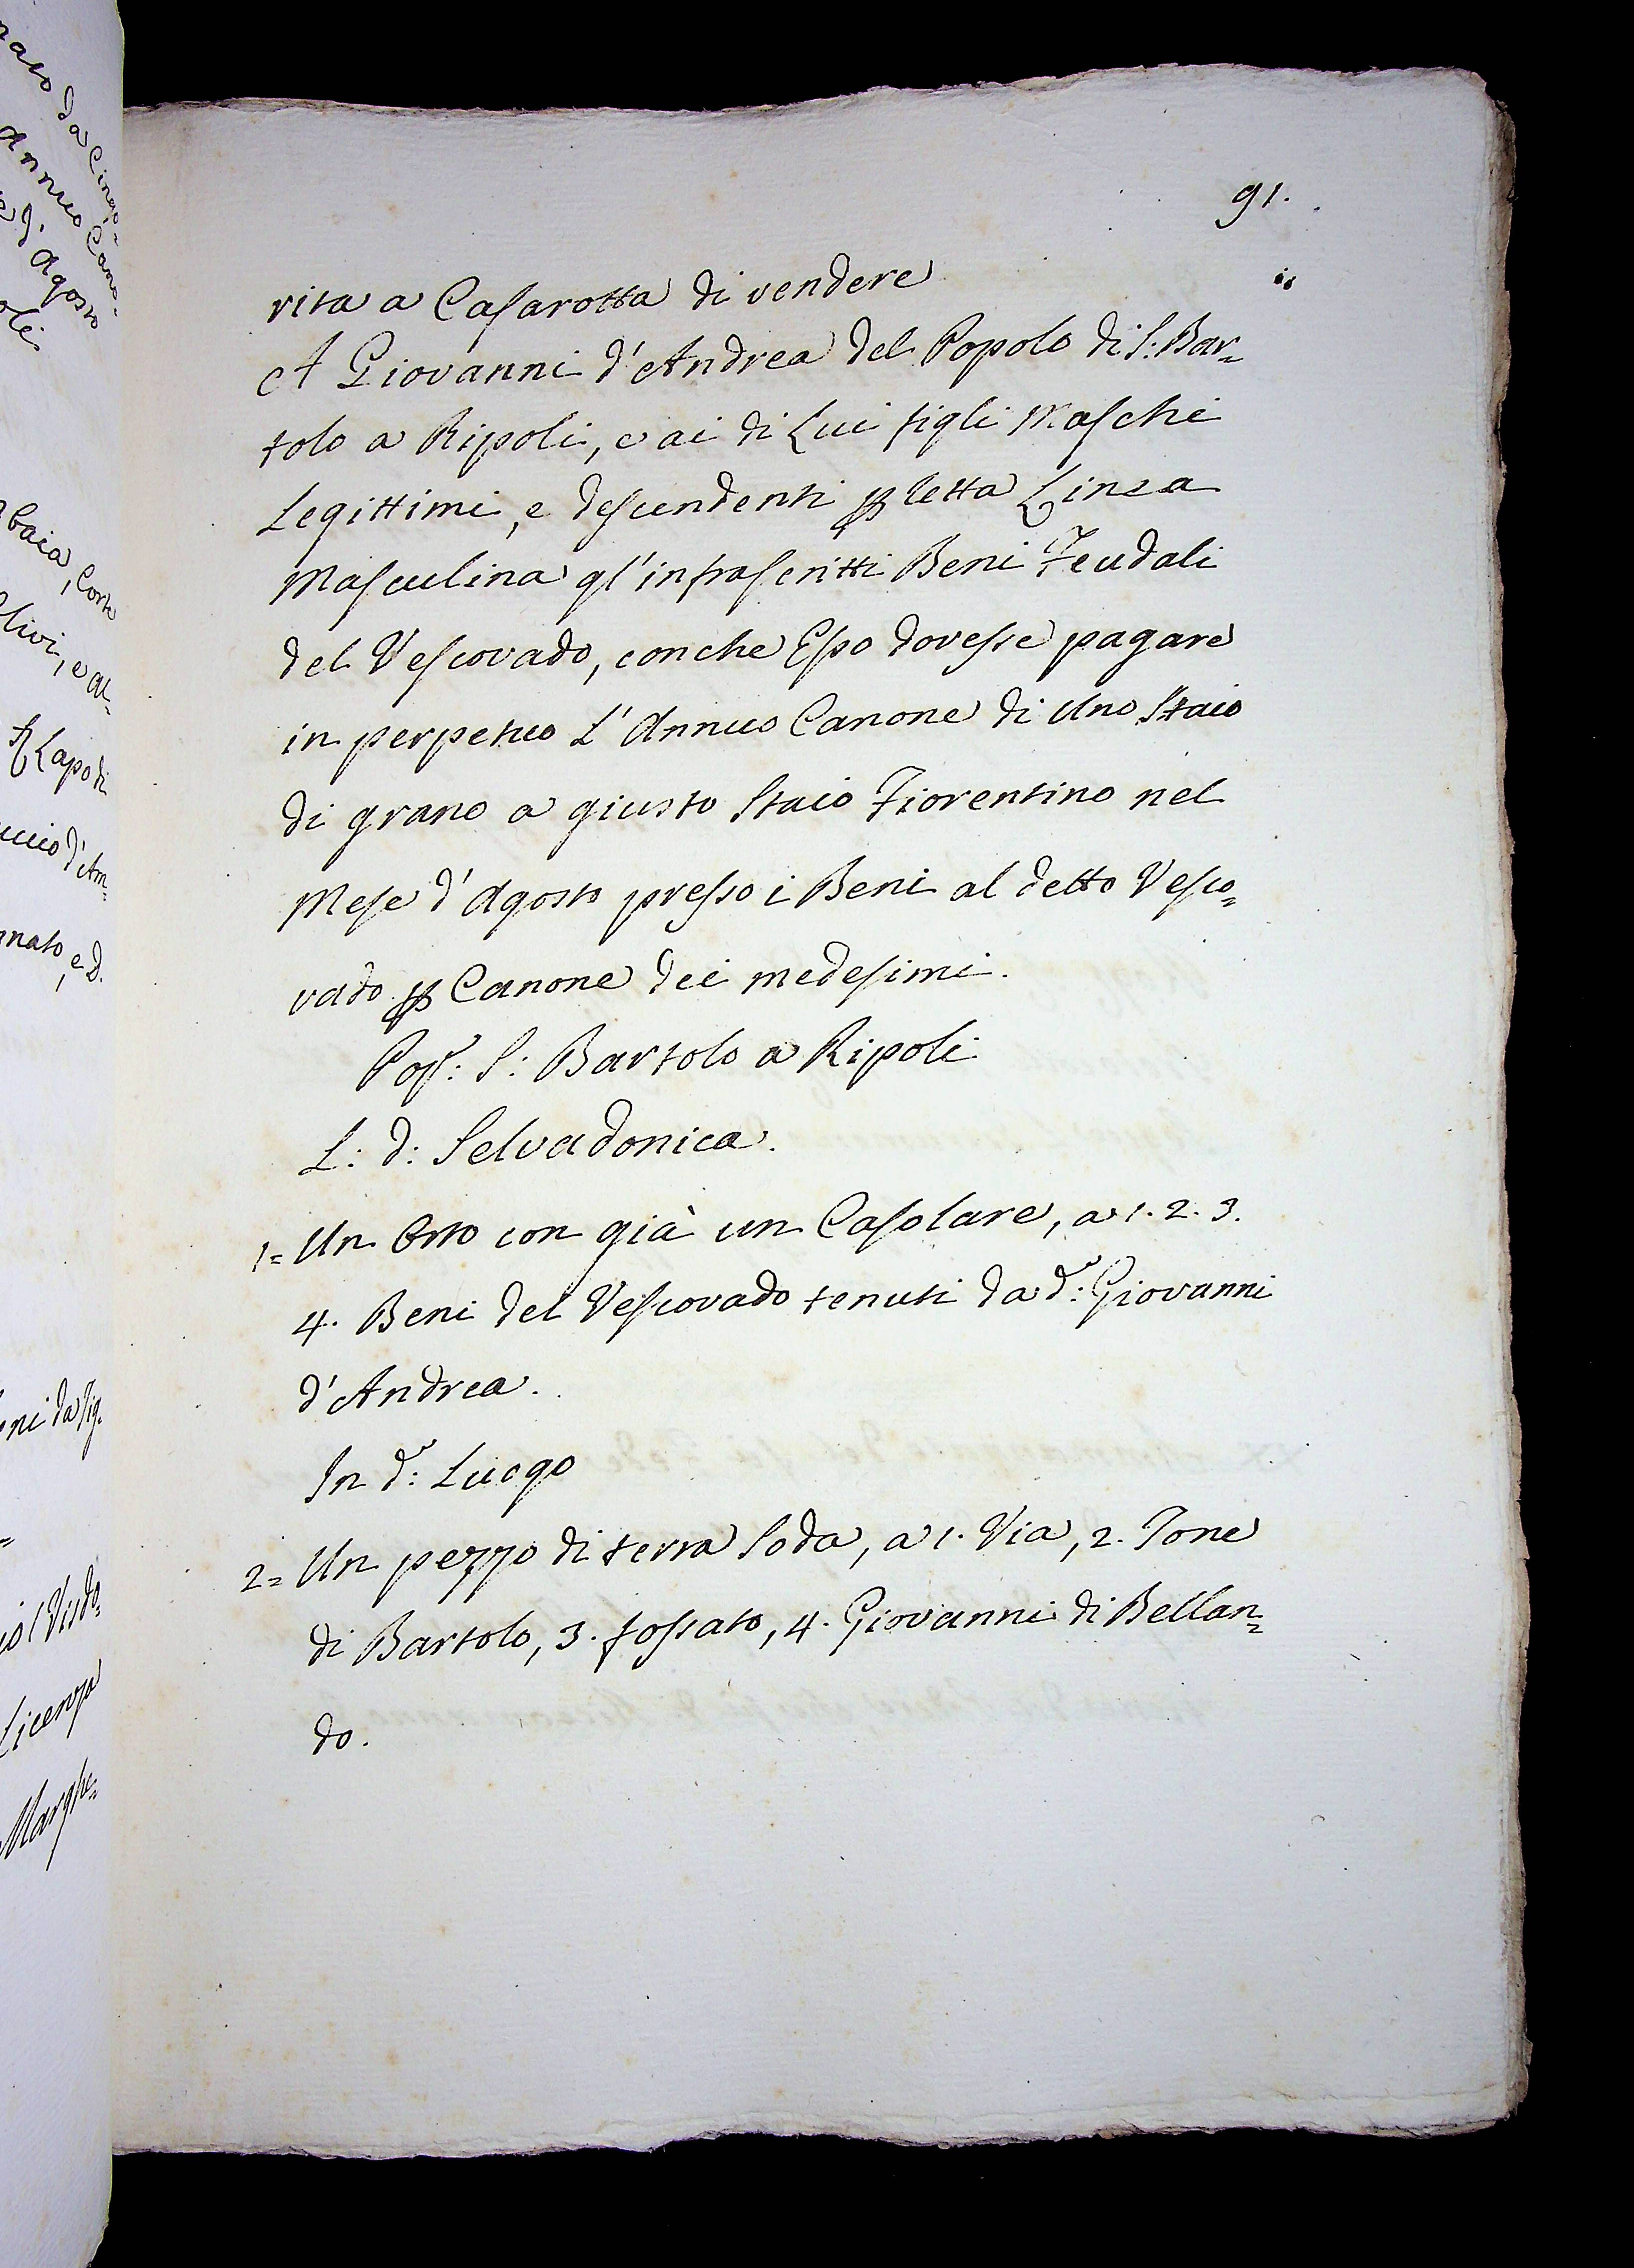 naso da Cingo=
Annuo Cano=
e d'Agosto
oli
baia, Corte
Olivi, e al=
Lapo di
uccio d'Am=
nato, e D.
ni da Fig.
io l Visdo=
Licenza
Marghe=
91.
rita a Casarotta di vendere
A Giovanni d'Andrea del Popolo di S: Bar=
tolo a Ripoli, e ai di Lui figli Maschi
Legittimi, e descendenti p letta Linea
Masculina gl'infrascritti Beni Feudali
del Vescovado, conche Esso dovesse pagare
in perpetuo L'Annuo Canone di Uno Staio
di grano a giusto Staio Fiorentino nel
Mese d'Agosto presso i Beni al detto Vesco=
vado p Canone dei medesimi.
Pop: S: Bartolo a Ripoli
L: d: Selvadonica.
1= Un Orto con già un Casolare, a 1. 2. 3.
4. Beni del Vescovado tenuti da d: Giovanni
d'Andrea.
In d: Luogo
2= Un pezzo di terra Soda, a 1. Via, 2. Tone
di Bartolo, 3. fossato, 4. Giovanni di Bellan=
do.